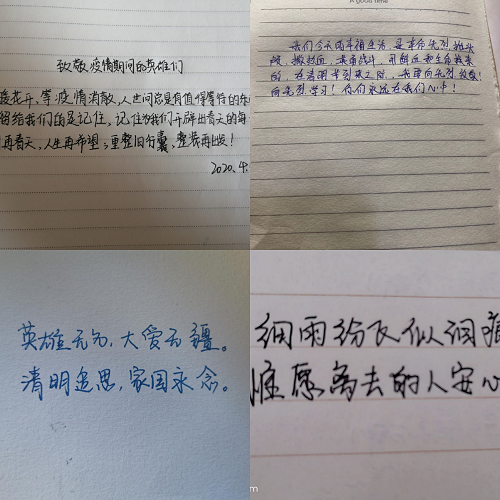 致敬疫情期间的英雄们
暖花开,等疫情消散,人世间总是有值得等待的东
将给我们的是记住,记住为我们开辟出春天的每
再春天,人生再希望,重整旧行囊,整装再出发!
2020.4.
A good time
我们今天的幸福生活,是革命先烈抛头
颅、洒热血,英勇战斗,用鲜血和生命换来
的,在清明节到来之际,我要向先烈致敬!
向先烈学习!你们永远在我们心中!
英雄无名,大爱无疆。
清明追思,家国永念。
细雨纷飞似泪痕
惟愿离去的人安心
m